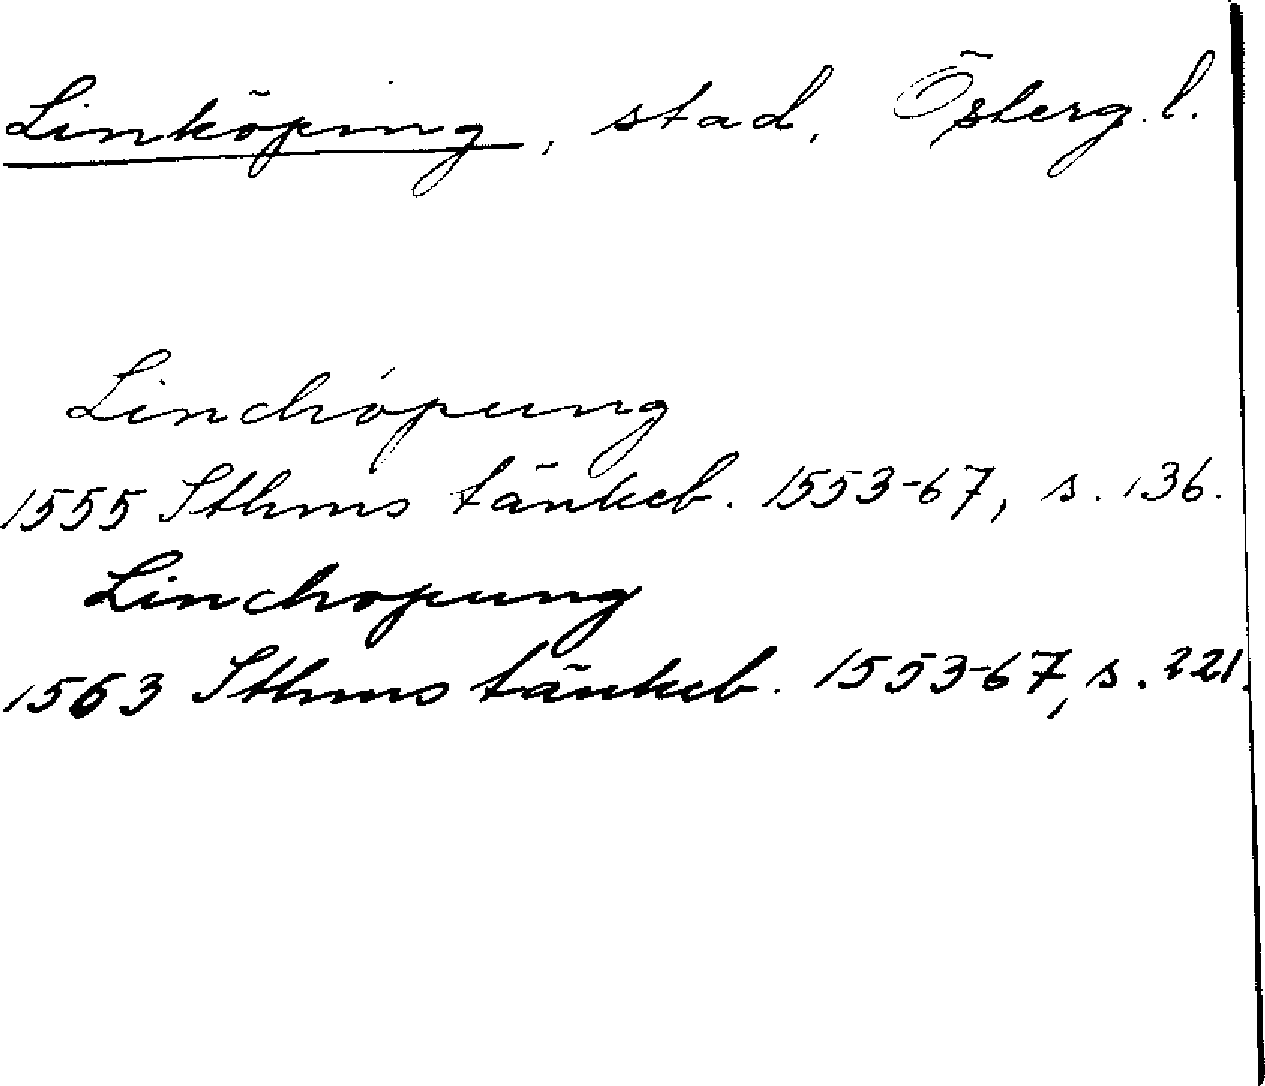 Linköping, stad, Österg.l.
Linchópung
1555 Sthms tänkeb. 1553-67, s. 136.
Linchopung
1563 Sthms tänkeb. 1553-67, s. 221.